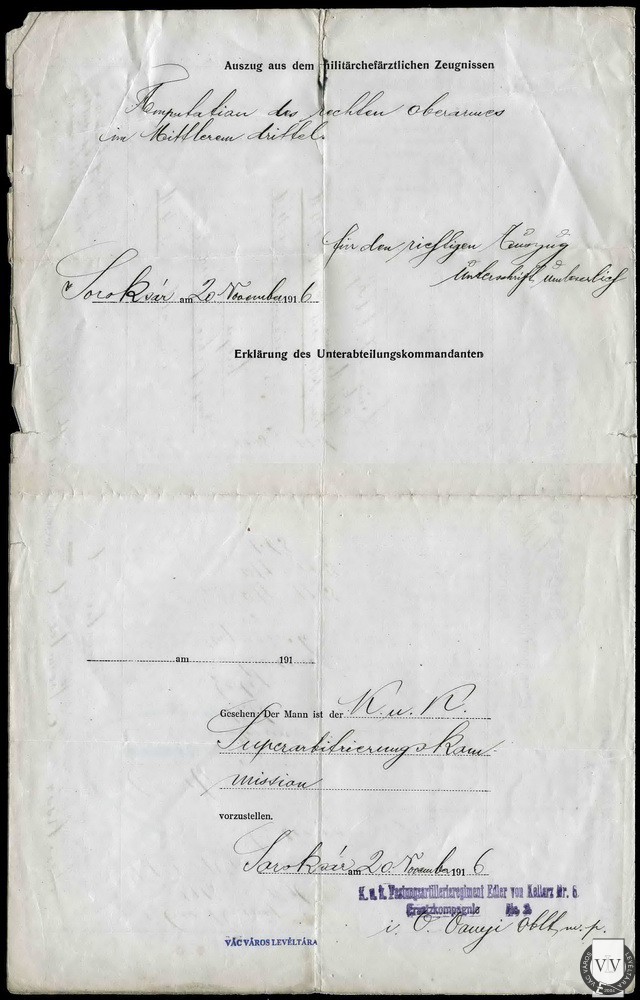 Auszug aus dem militärchefärztlichen Zeugnissen
Amputation des rechten Oberarmes
im Mittlerem drittel.
für den richtigen Auszug
Unterschrift unleserlich
Soroksár am 20 November 1916
Erklärung des Unterabteilungskommandanten
am 191
Gesehen: Der Mann ist der K. u. K.
Superarbitrierungskom-
mission
vorzustellen.
Soroksár am 20. November 1916
K. u. k. Festungsartillerieregiment Edler von Kollarz Nr. 6
Ersatzkompagnie No. 2
i. V. Oblt. m. p.
VÁC VÁROS LEVÉLTÁRA
VÁC VÁROS LEVÉLTÁRA
VVL